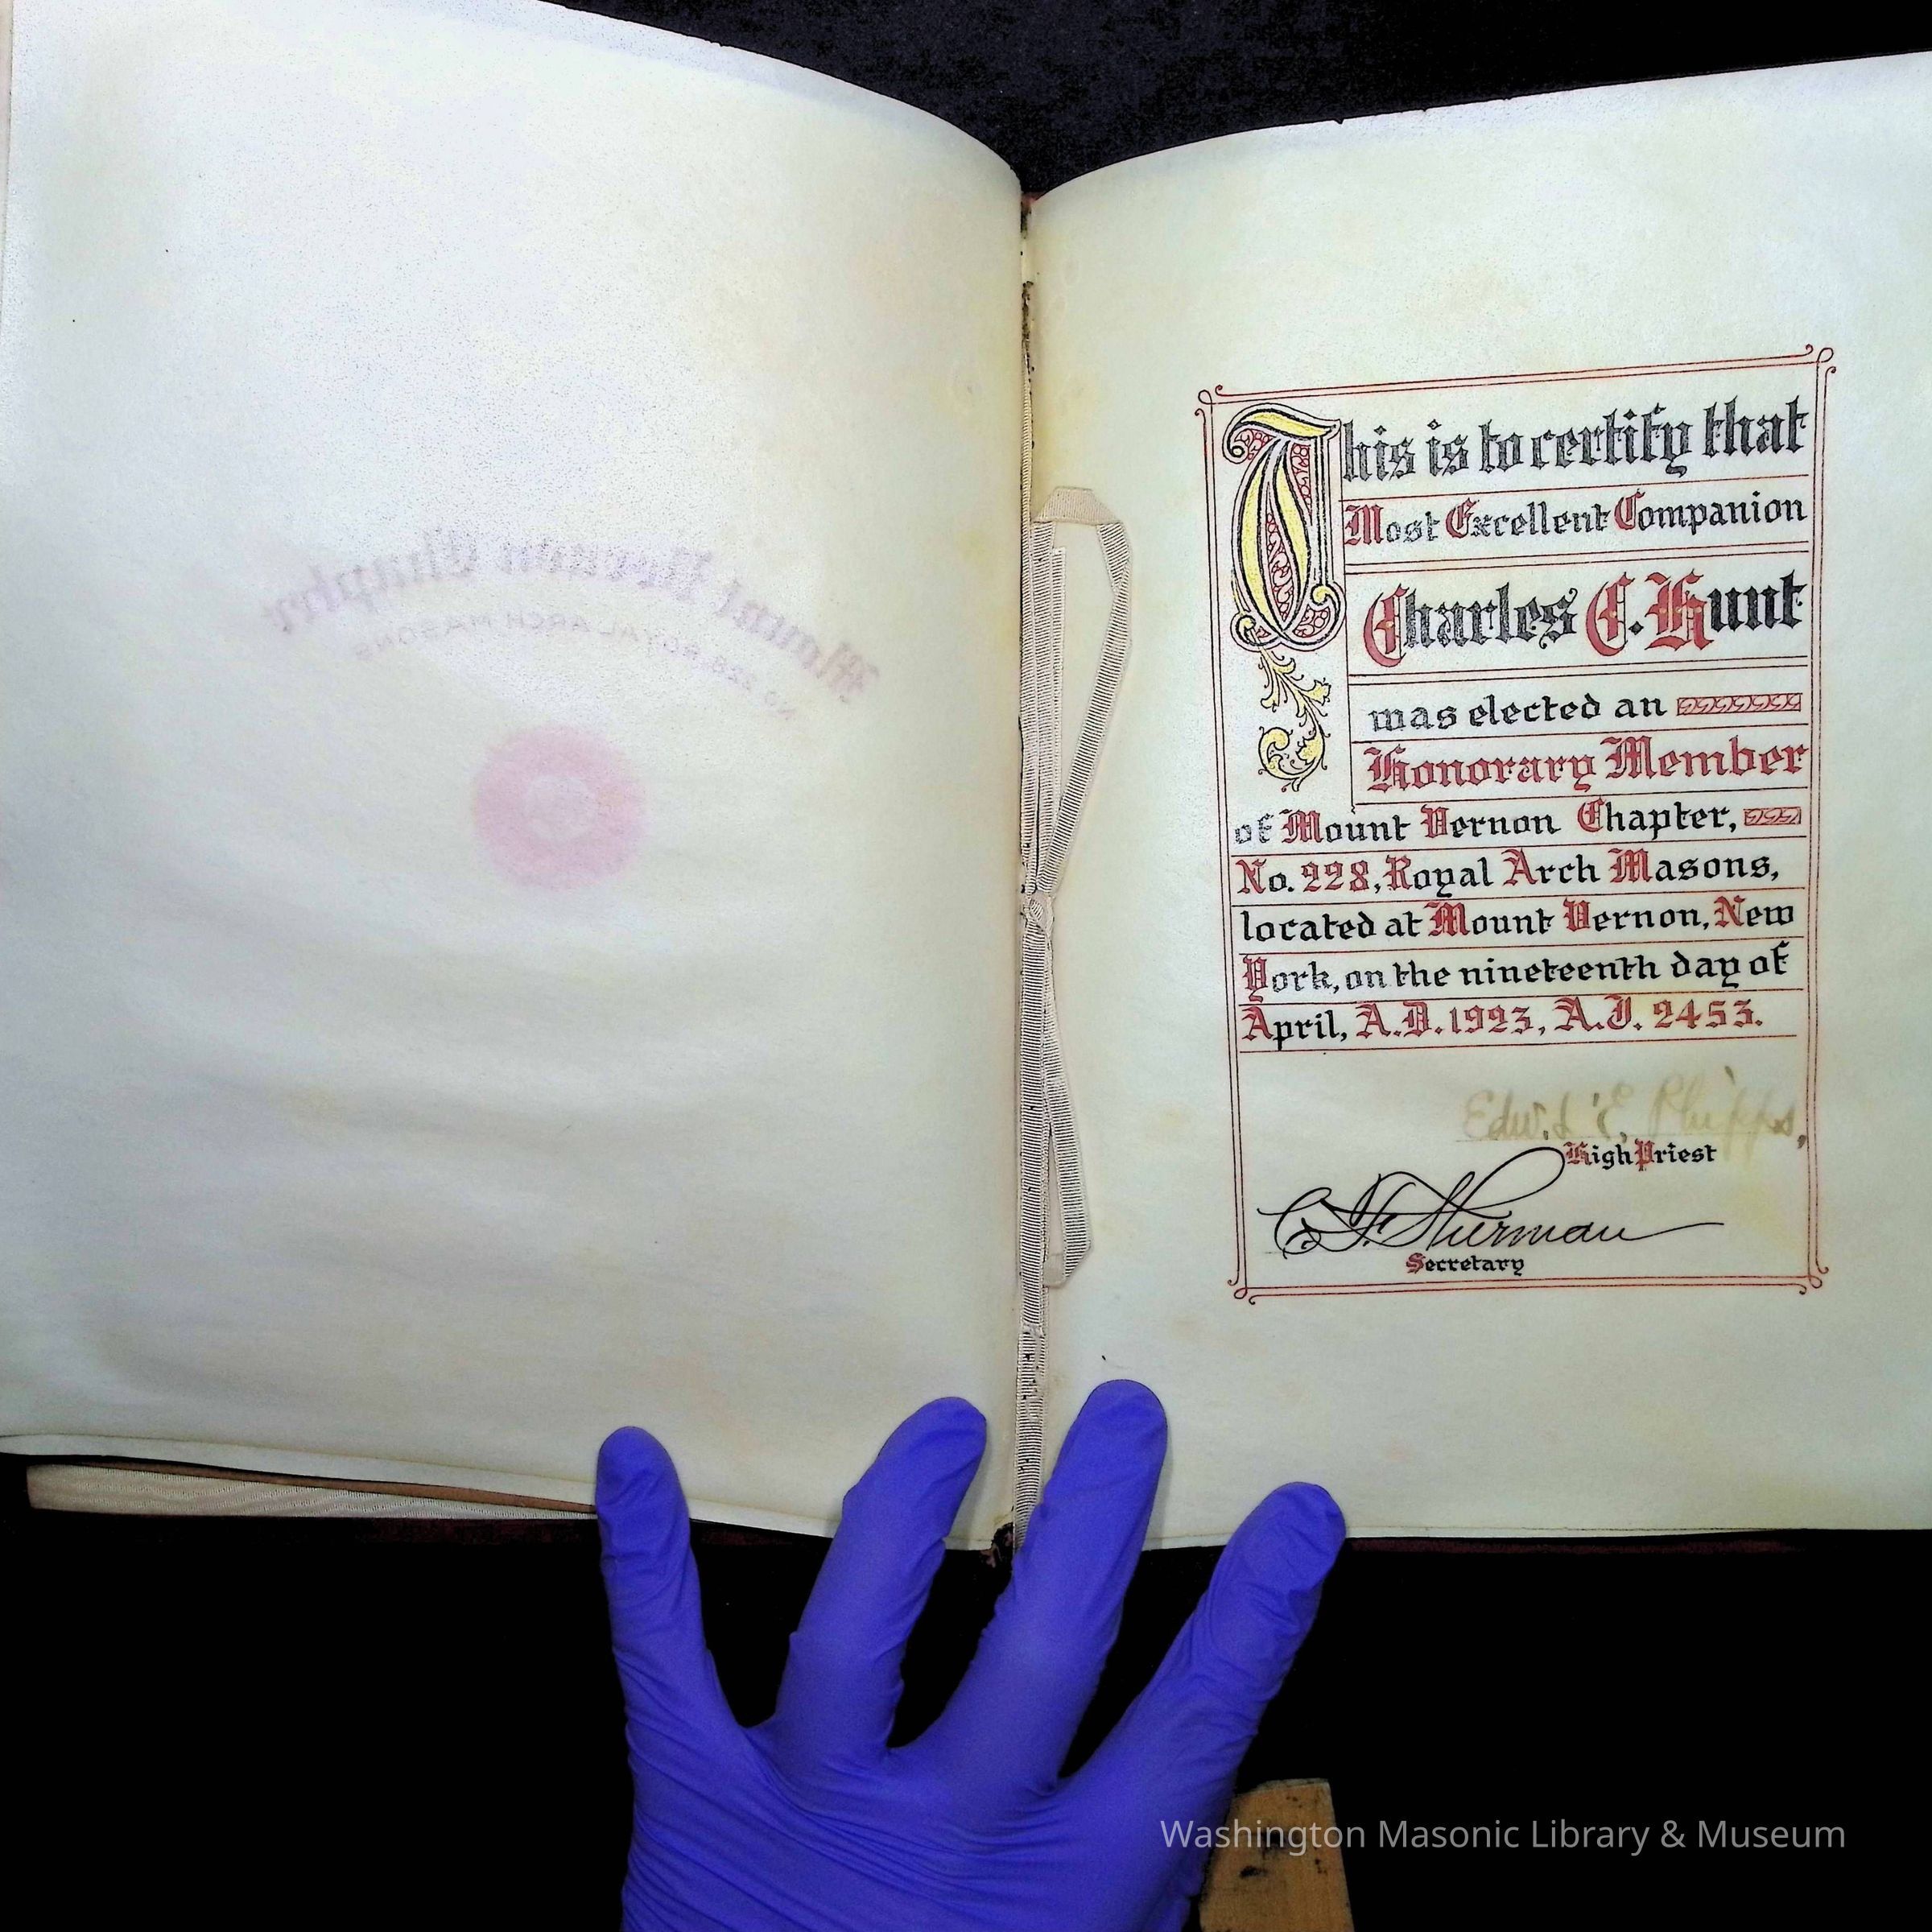 Mount Vernon Chapter
NO. 228, ROYAL ARCH MASONS
This is to certify that
Most Excellent Companion
Charles C. Hunt
was elected an
Honorary Member
of Mount Vernon Chapter,
No. 228, Royal Arch Masons,
located at Mount Vernon, New
York, on the nineteenth day of
April, A.D. 1923, A.I. 2453.
Edw. L. E. Phipps,
High Priest
C. F. Sherman
Secretary
Washington Masonic Library & Museum